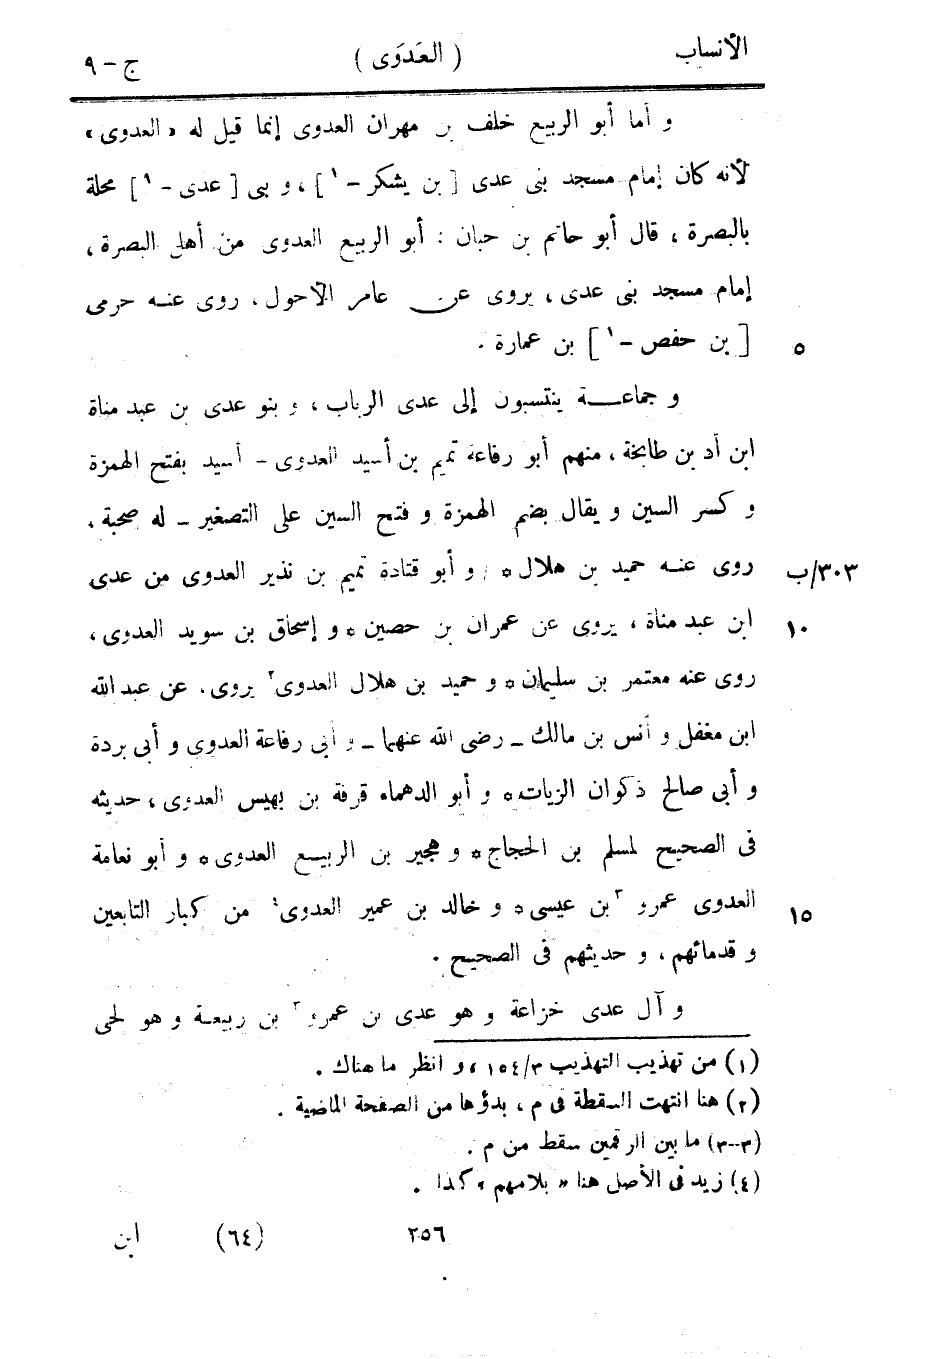 الأنساب ( العَدَوى ) ج – ٩
و أما أبو الربيع خلف بن مهران العدوى إنما قيل له « العدوى »
لأنه كان إمام مسجد بنى عدى [ بن يشكر – ١ ] ، و بنى [ عدى – ١ ] محلة
بالبصرة ، قال أبو حاتم بن حبان : أبو الربيع العدوى من أهل البصرة ،
إمام مسجد بنى عدى ، يروى عن عامر الاحول ، روى عنه حرمى
[ بن حفص – ١ ] بن عمارة . ٥
و جماعة ينتسبون إلى عدى الرباب ، و بنو عدى بن عبد مناة
ابن أد بن طابخة ، منهم أبو رفاعة تميم بن أسيد العدوى – أسيد بفتح الهمزة
و كسر السين و يقال بضم الهمزة و فتح السين على التصغير – له صحبة ،
روى عنه حميد بن هلال * و أبو قتادة تميم بن نذير العدوى من عدى ٣٠٣/ب
ابن عبد مناة ، يروى عن عمران بن حصين * و إسحاق بن سويد العدوى ، ١٠
روى عنه معتمر بن سليمان * و حميد بن هلال العدوى ٢ يروى عن عبد الله
ابن مغفل و أنس بن مالك – رضى الله عنهما – و أبى رفاعة العدوى و أبى بردة
و أبى صالح ذكوان الزيات * و أبو الدهماء قرفة بن بهيس العدوى ، حديثه
فى الصحيح لمسلم بن الحجاج * و هجير بن الربيع العدوى * و أبو نعامة
العدوى عمرو ٣ بن عيسى * و خالد بن عمير العدوى ٤ من كبار التابعين ١٥
و قدمائهم ، و حديثهم فى الصحيح .
و آل عدى خزاعة و هو عدى بن عمرو ٣ بن ربيعة و هو لحى
(١) من تهذيب التهذيب ١٥٤/٣ ، و انظر ما هناك .
(٢) هنا انتهت السقطة فى م ، بدؤها من الصفحة الماضية .
(٣–٣) ما بين الرقمين سقط من م .
(٤) زيد فى الأصل هنا « بلامهم » كذا .
٢٥٦ (٦٤) ابن